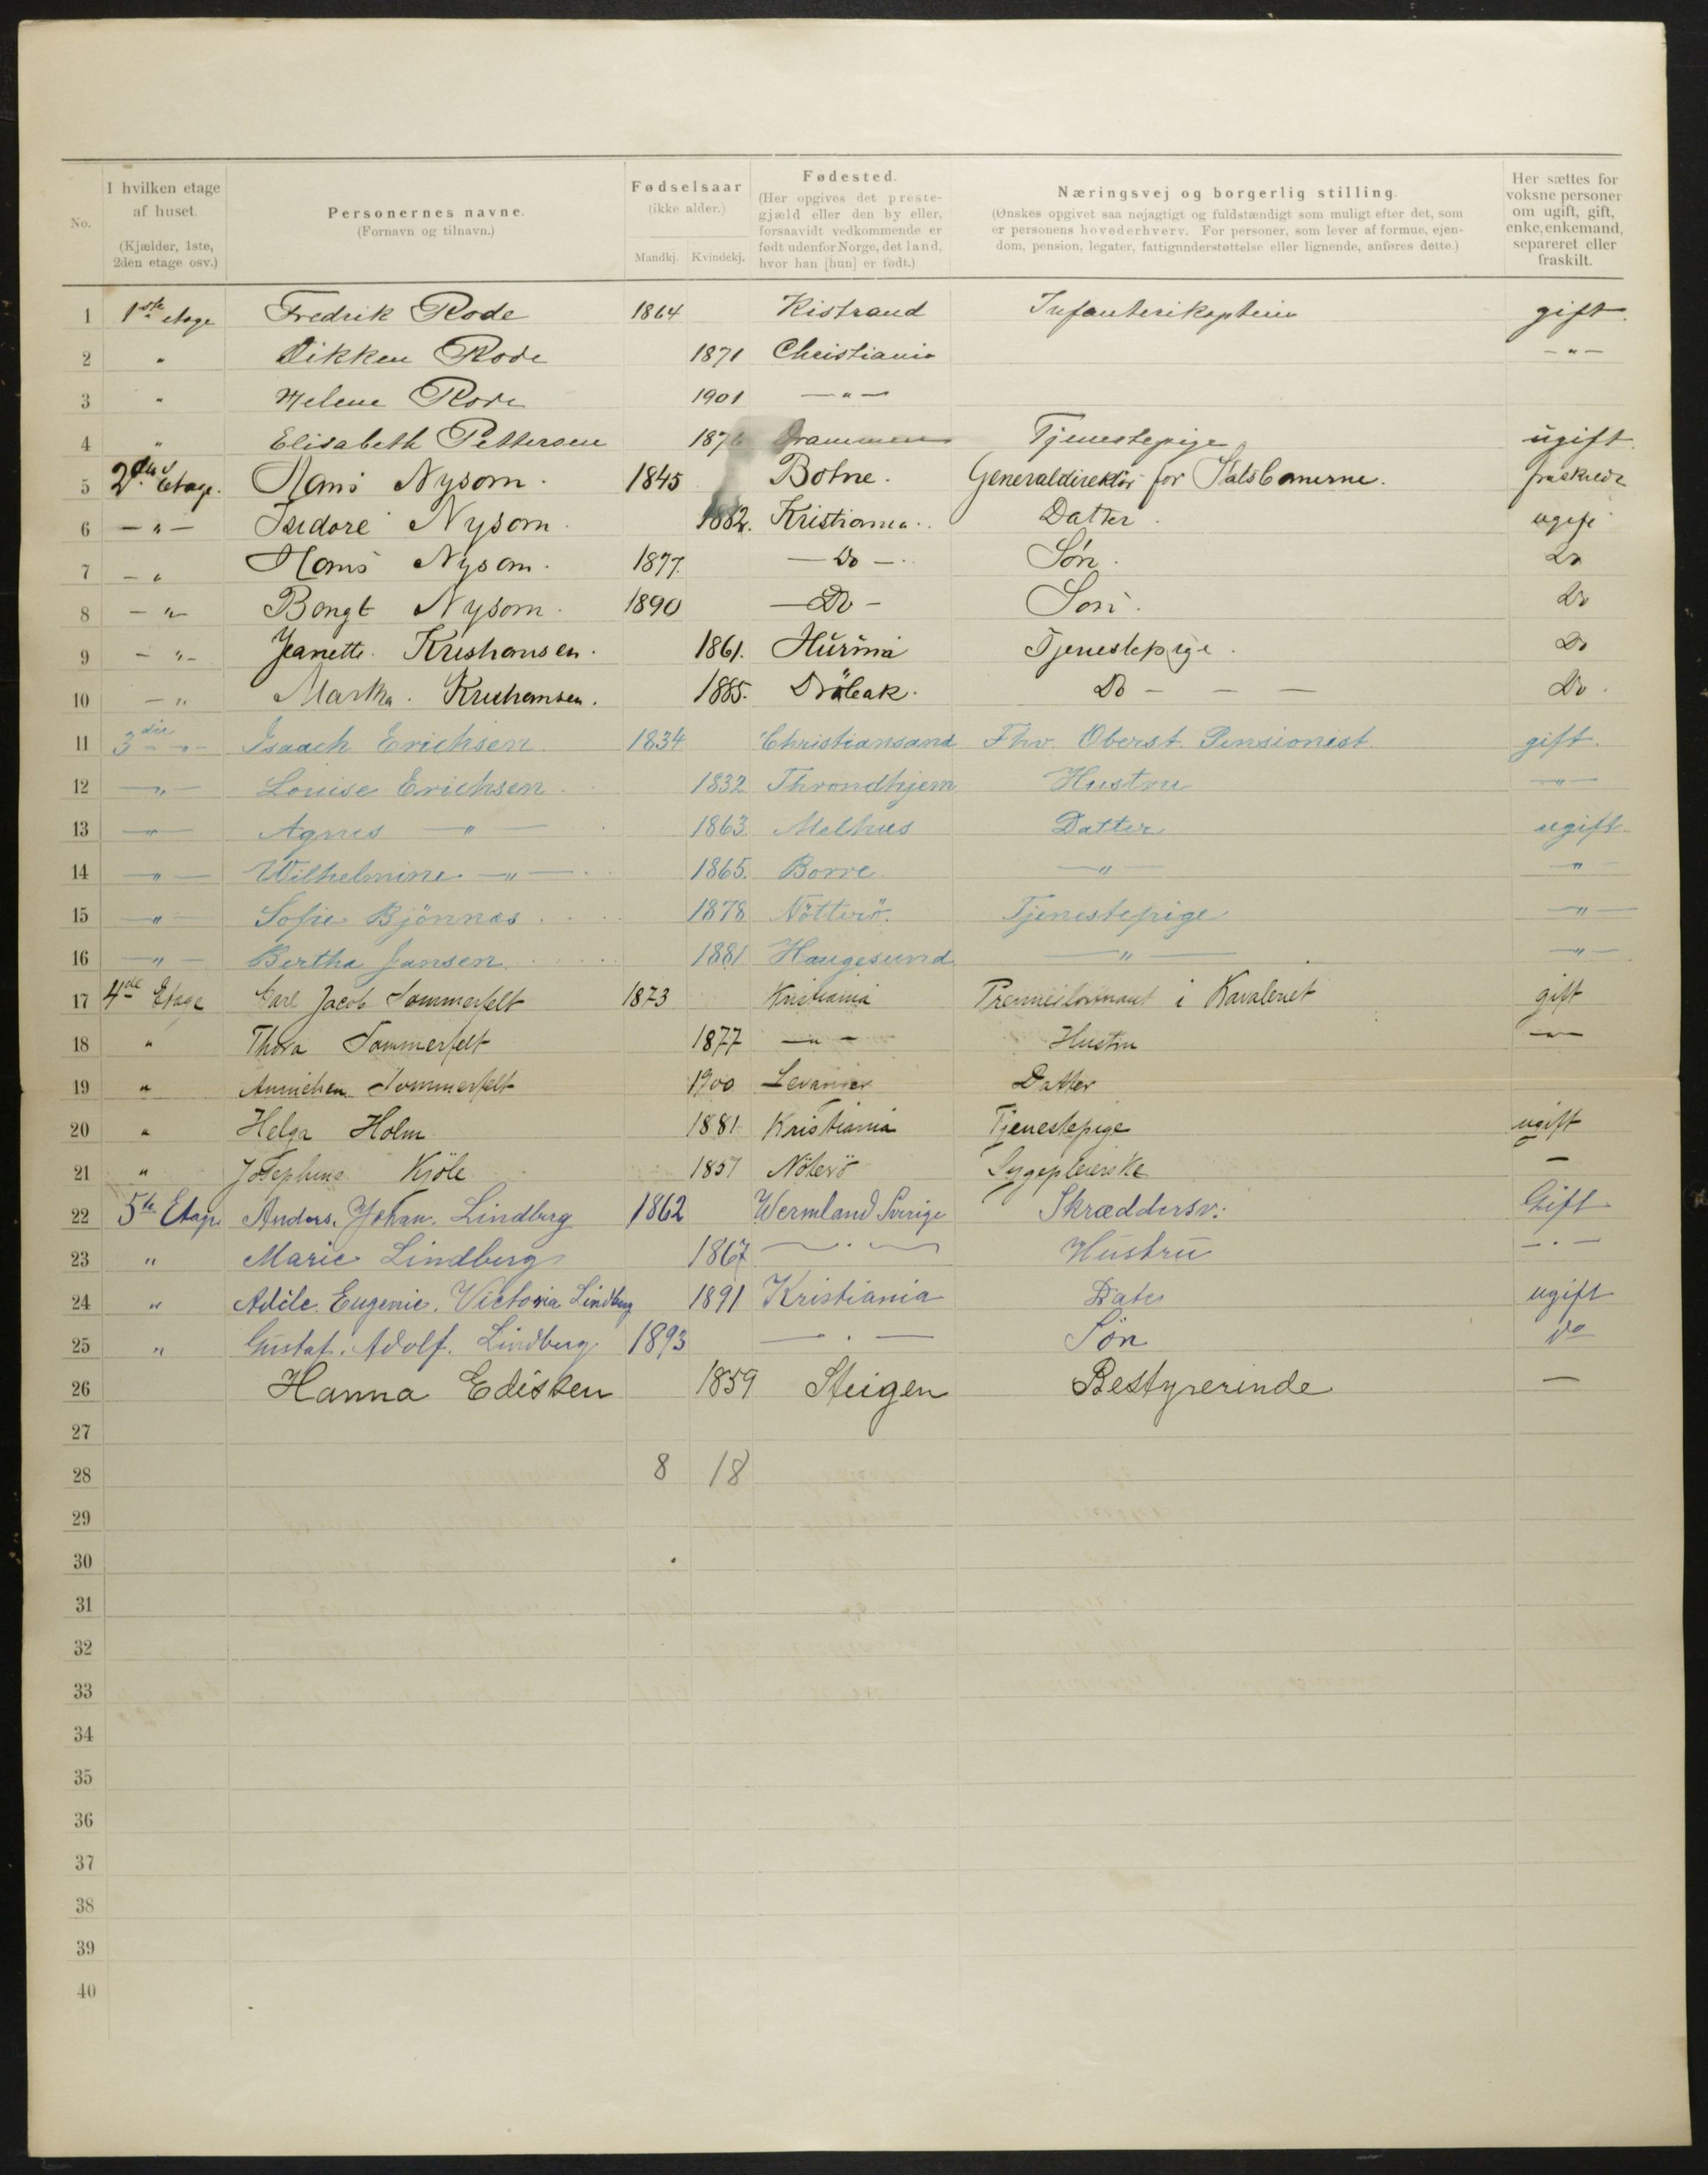 No.
I hvilken etage af huset. (Kjælder, 1ste, 2den etage osv.)
Personernes navne. (Fornavn og tilnavn.)
Fødselsaar (ikke alder.) Mandkj. Kvindekj.
Fødested. (Her opgives det prestegjæld eller den by eller, forsaavidt vedkommende er født udenfor Norge, det land, hvor han [hun] er født.)
Næringsvej og borgerlig stilling. (Ønskes opgivet saa nøjagtigt og fuldstændigt som muligt efter det, som er personens hovederhverv. For personer, som lever af formue, ejendom, pension, legater, fattigunderstøttelse eller lignende, anføres dette.)
Her sættes for voksne personer om ugift, gift, enke, enkemand, separeret eller fraskilt.
1 1ste etage Fredrik Rode 1864 Kistrand Infanterikaptein gift.
2 " Dikken Rode 1871 Christiania — " —
3 " Helene Rode 1901 — " —
4 " Elisabeth Pettersen 1876 Drammen Tjenestepige ugift.
5 2den Etage. Hans Nysom. 1845 Botne. Generaldirektör for Statsbanerne. fraskildt
6 — " — Isidore Nysom. 1882. Kristiania. Datter. ugift
7 — " Hans Nysom. 1877. — Do — Sön. Do
8 — " — Bengt Nysom. 1890 — Do — Sön. Do
9 — " — Jeanette Kristiansen. 1861. Hurum Tjenestepige. Do
10 — " Martha. Kristiansen. 1885. Dröbak. Do — — — Do.
11 3die — " — Isaach Erichsen 1834 Christiansand Fhv. Oberst. Pensionist. gift.
12 — " — Louise Erichsen 1832 Throndhjem Hustru — " —
13 — " — Agnes — " — 1863. Melhus Datter ugift.
14 — " — Wilhelmine — " — 1865. Borre — " — — " —
15 — " — Sofie Bjönnæs 1878 Nötterö. Tjenestepige — " —
16 — " — Bertha Jansen 1881 Haugesund — " — — " —
17 4de Etage Carl Jacob Sommerfelt 1873 Kristiania Premierlöitnant i Kavaleriet gift
18 " Thora Sommerfelt 1877 — " — Hustru — " —
19 " Annichen Sommerfelt 1900 Levanger Datter
20 " Helga Holm 1881 Kristiania Tjenestepige ugift
21 " Josephine Kjöle 1857 Nöterö Sygepleierske —
22 5te Etage Anders. Johan. Lindberg 1862 Wermland Sverige Skræddersv: Gift
23 " Marie Lindberg 1867 — . — Hustru — . —
24 " Adéle. Eugenie. Victoria Lindberg 1891 Kristiania Dater ugift
25 " Gustaf. Adolf. Lindberg 1893 — . — Sön do
26 Hanna Edisken 1859 Steigen Bestyrerinde —
27
28 8 18
29
30
31
32
33
34
35
36
37
38
39
40